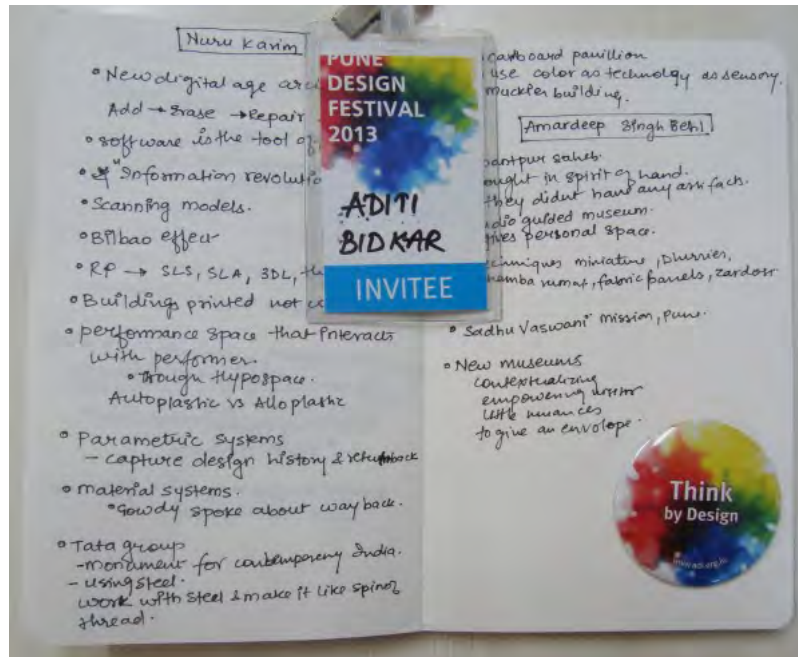 Nuru Karim
• New digital age arc
Add → Erase → Repair
• software is the tool of
• "Information revolutio
• Scanning models.
• Bilbao effect
• RP → SLS, SLA, 3DL, th
• Buildings printed not
• performance space that Interacts
with performer.
• Through Hypospace.
Autoplastic vs Alloplastic
• Parametric systems
- capture design history & back
• material systems.
• Gowdy spoke about way back.
• Tata group
- monument for contemporary India.
- using steel.
work with steel & make it like spinal
thread.
PUNE
DESIGN
FESTIVAL
2013
ADITI
BIDKAR
INVITEE
cardboard pavillion
use color as technology as sensory.
muckler building.
Amardeep Singh Behl
antpur saheb.
ought in spirit of hand.
they didnt have any artifacts.
dio guided museum.
gives personal space.
chniques miniature, Dhurries,
hamba rumal, fabric panels, zardosi
• Sadhu Vaswani mission, Pune.
• New museums
contextualizing
empowering visitor
little nuances
to give an envolope.
Think
by Design